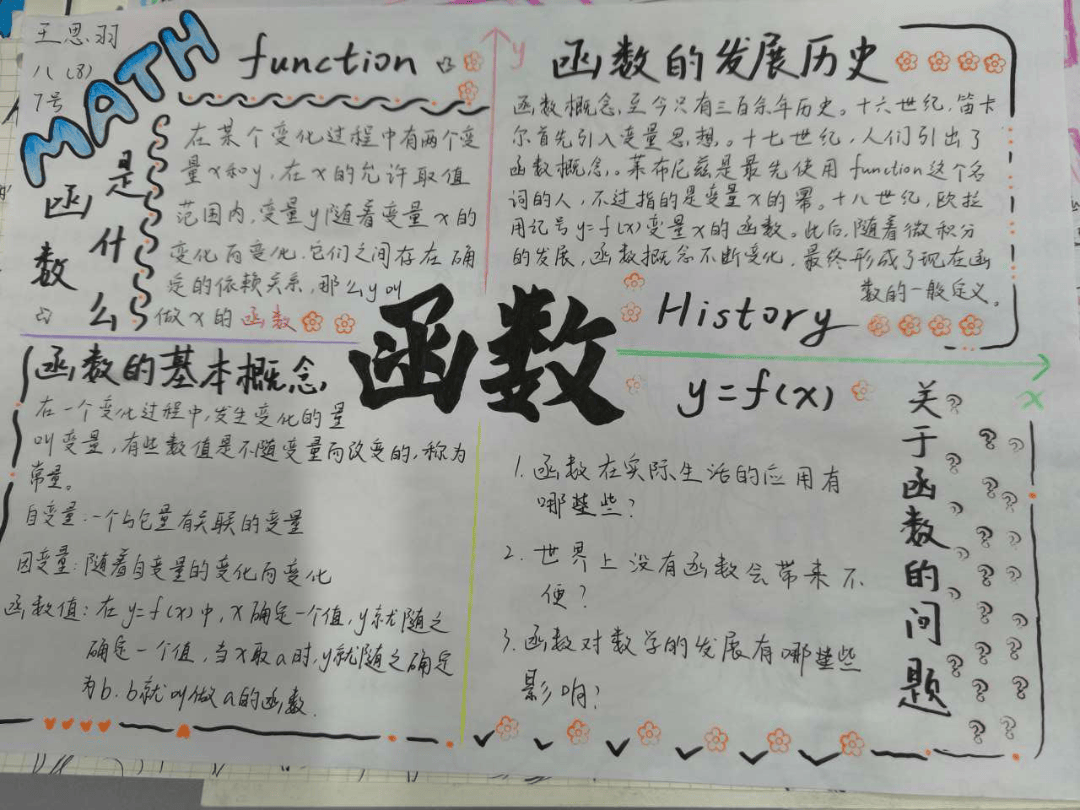 王思羽
八(8)
7号
MATH
function
是什么
函数
在某个变化过程中有两个变
量x和y,在x的允许取值
范围内,变量y随着变量x的
变化而变化,它们之间存在确
定的依赖关系,那么y叫
做x的函数
y
函数的发展历史
函数概念,至今只有三百余年历史。十六世纪,笛卡
尔首先引入变量思想。十七世纪,人们引出了
函数概念。莱布尼兹是最先使用function这个名
词的人,不过指的是变量x的幂。十八世纪,欧拉
用记号y=f(x)变量x的函数。此后,随着微积分
的发展,函数概念不断变化,最终形成了现在函
数的一般定义。
History
函数
x
函数的基本概念
在一个变化过程中,发生变化的量
叫变量,有些数值是不随变量而改变的,称为
常量。
自变量:一个与它量有关联的变量
因变量:随着自变量的变化而变化
函数值:在y=f(x)中,x确定一个值,y就随之
确定一个值,当x取a时,y就随之确定
为b.b就叫做a的函数.
y=f(x)
关于函数的问题
1.函数在实际生活的应用有
哪些些?
2.世界上没有函数会带来不
便?
3.函数对数学的发展有哪些些
影响?